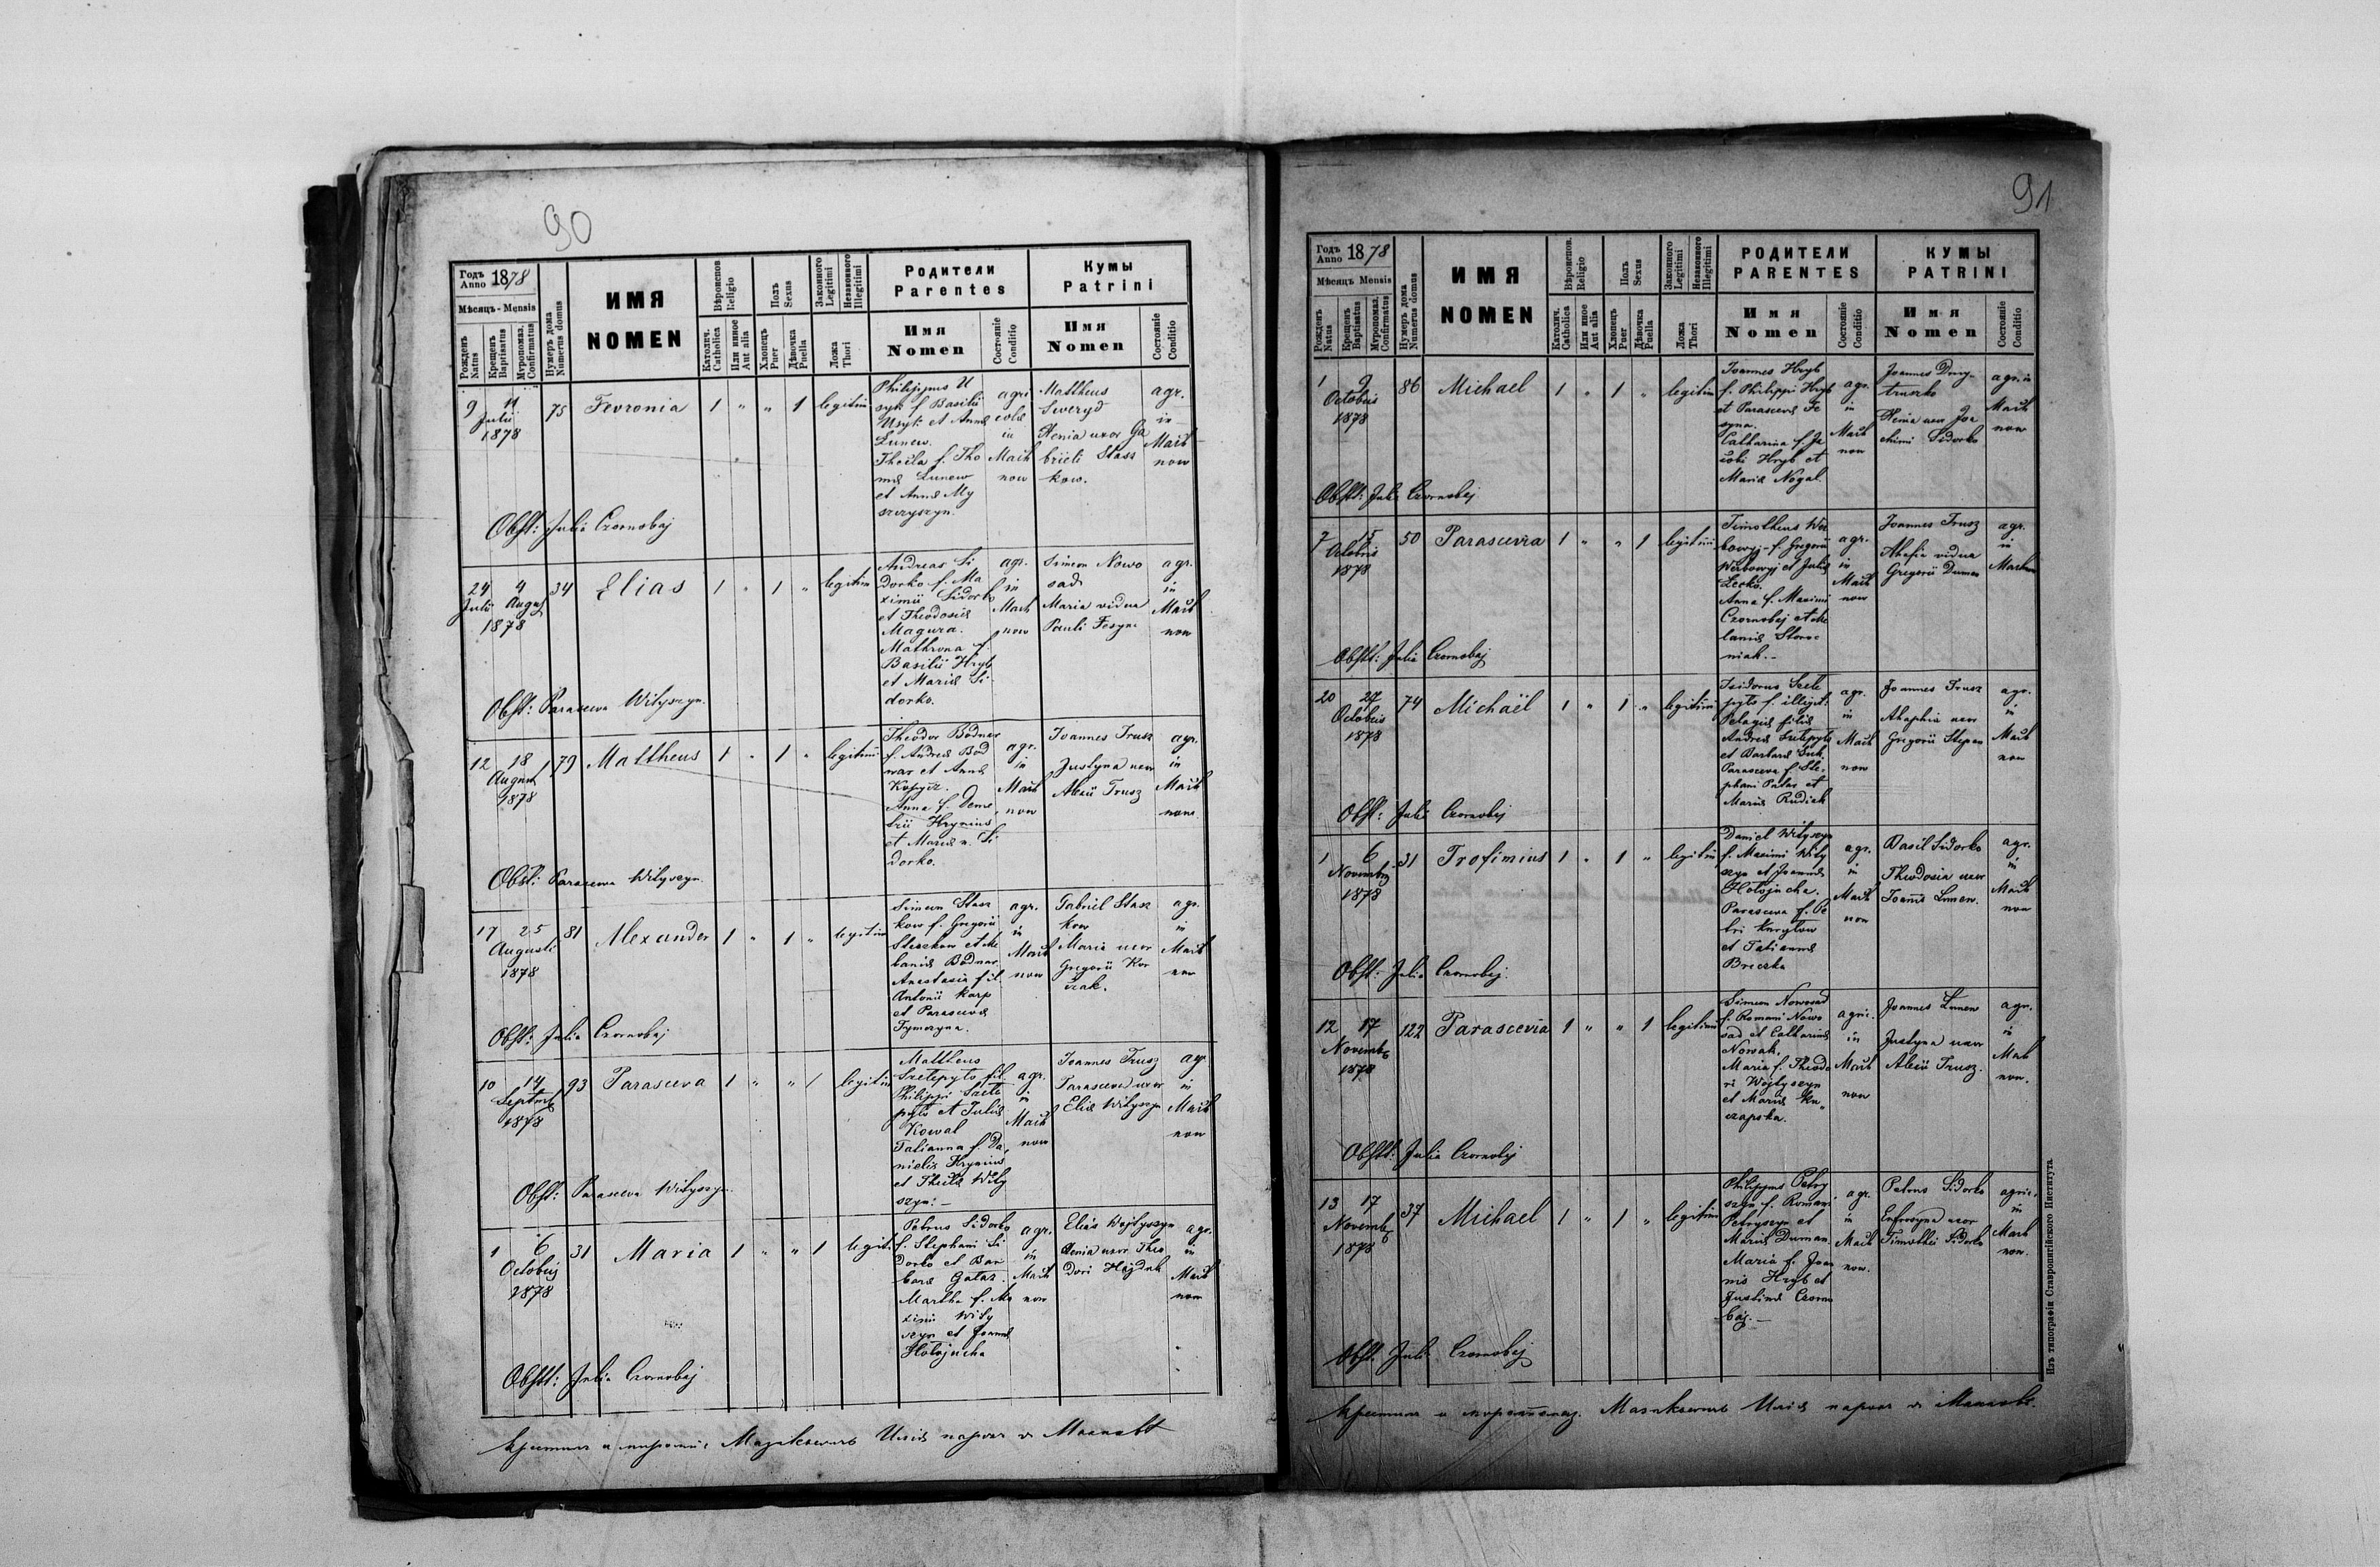 90
Годъ Anno 1878
Мѣсяцъ - Mensis
Рожденъ Natus
Крещенъ Baptisatus
Мvропомаз. Confirmatus
Нумеръ дома Numerus domus
ИМЯ
NOMEN
Вѣроиспов Religio
Католич. Catholica
Или иное Aut alia
Полъ Sexus
Хлопецъ Puer
Дѣвочка Puella
Законного Legitimi
Незаконного Illegitimi
Ложа Thori
Родители
Parentes
Имя
Nomen
Состоянiе Conditio
Кумы
Patrini
Имя
Nomen
Состоянiе Conditio
9 11
Julii
1878
75
Fevronia
1 " " 1
legitim
Philippus U
syk f Basilii
Usyk et Annæ
Lunew.
Thecla f. Tho
mæ Lunew
et Annæ My
szczyszyn.
agri
colæ
in
Maih
now
Mattheus
Sweryd
Xenia uxor Ga
brieli Stasz
kow.
agr.
in
Maih
now
Obst: Julia Czornobaj
24 4
Julii August
1878
34
Elias
1 " 1 "
legitim
Andreas Si
dorko f. Ma
ximii Sidorko
et Theodosiæ
Magura.
Mathrona f.
Basilii Hryb
et Mariæ Si
dorko.
agr.
in
Maih
now
Simeon Nowo
sad
Maria vidua
Pauli Fesyna
agr.
in
Maih
now
Obst: Parasceva Wityszyn.
12 18
August
1878
79
Mattheus
1 " 1 "
legitimi
Theodor Bodnar
f. Andreæ Bod
nar et Annæ
Kopycz.
Anna f. Deme
trii Hrynius
et Mariæ n. Si
dorko.
agr.
in
Maih
now
Joannes Trusz
Justyna uxor
Alexii Trusz
agr.
in
Maih
now
Obst: Parasceva Wityszyn
17 25
Augusti
1878
81
Alexander
1 " 1 "
legitim
Simeon Stasz
kow f. Gregorii
Staszkow et Me
laniæ Bodnar
Anastasia fil.
Antonii Karp
et Parascevæ
Tymczyna.
agr.
in
Maih
now
Gabriel Stasz
kow
Maria uxor
Gregorii Kor
czak.
agr.
in
Maih
now
Obst: Julia Czornobaj
10 14
Septemb
1878
93
Parasceva
1 " " 1
legitim
Mattheus
Szelepylo fil.
Philippi Szele
pylo et Juliæ
Kowal
Tatianna f. Da
nielis Hrynius
et Theclæ Wity
szyn: —
agr.
in
Maih
now
Joannes Trusz
Parasceva uxor
Eliæ Wityszyn
agr
in
Maih
now
Obst: Parasceva Wityszyn.
1 6
Octobris
1878
31
Maria
1 " " 1
legit.
Petrus Sidorko
f. Stephani Si
dorko et Bar
baræ Gałaz.
Martha f. Ma
ximi Wity
szyn et Joannæ
Hołojucha
agr.
in
Maih
now
Elias Wojtyszyn
Xenia uxor Theo
dori Hajduk
agr.
in
Maih
now
Obst: Julia Czornobaj
91
Годъ Anno 1878
Мѣсяцъ Mensis
Рожденъ Natus
Крещенъ Baptisatus
Мvропомаз. Confirmatus
Нумеръ дома Numerus domus
ИМЯ
NOMEN
Вѣроиспов. Religio
Католич. Catholica
Или иное Aut alia
Полъ Sexus
Хлопецъ Puer
Дѣвочка Puella
Законного Legitimi
Незаконного Illegitimi
Ложа Thori
РОДИТЕЛИ
PARENTES
Имя
Nomen
Состоянiе Conditio
КУМЫ
PATRINI
Имя
Nomen
Состоянiе Conditio
1 9
Octobris
1878
86
Michael
1 " 1 "
legitim
Joannes Hryb
f. Philippi Hryb
et Parascevæ Fe
syna.
Catharina f. Ja
cobi Hryb et
Mariæ Nogal.
agr.
in
Maih
now
Joannes Dmy
truszko
Xenia uxor Joa
chimi Sidorko
agr. in
Maih
now
Obst: Julia Czornobaj
7 15
Octobris
1878
50
Parascevia
1 " " 1
legitimi
Timotheus Wer
bowyj f. Gregorii
Werbowyj et Juliæ
Lecko.
Anna f. Maximi
Czornobaj et Me
laniæ Storo
niak. —
agr.
in
Maih
now
Joannes Trusz
Ahafia vidua
Gregorii Duman
agr.
in
Maihow
Obst: Julia Czornobaj
20 27
Octobris
1878
74
Michaël
1 " 1 "
legitim
Isidorus Szele
pylo f. illegit:
Pelagiæ filiæ
Andreæ Szelepylo
et Barbaræ
Parasceva f. Ste
phani Patas et
Mariæ Rudiak
agr.
in
Maih
now
Joannes Trusz
Ahaphia uxor
Gregorii Stepan
agr.
in
Maih
now
Obst: Julia Czornobaj
1 6
Novembris
1878
31
Trofimius
1 " 1 "
legitim
Daniel Witysz
f. Maximi Wity
szyn et Joannæ
Hołojucha.
Parasceva f. Pe
tri Kurylow
et Tatiannæ
Breczka
agr.
in
Maih
now
Basil Sidorko
Theodosia uxor
Joannis Lunew.
agr.
in
Maih
now
Obst: Julia Czornobaj.
12 17
Novembr
1878
122
Parascevia
1 " " 1
legitimi
Simeon Nowosad
f. Romani Nowo
sad et Catharinæ
Nowak.
Maria f. Theodo
ri Wojtyszyn
et Mariæ Ku
czapska.
agric.
in
Maih
now
Joannes Lunew
Justyna uxor
Alexii Trusz.
agr.
in
Maih
now.
Obst: Julia Czornobaj
13 17
Novemb
1878
37
Michael
1 " 1 "
legitim
Philippus Petry
szyn f. Romani
Petryszyn et
Mariæ Duman.
Maria f. Joan
nis Hryb et
Justinæ Czorno
baj. —
agr.
in
Maih
now.
Petrus Sidorko
Eufrosyna uxor
Timothei Sidorko
agric.
in
Maih
now.
Obst. Julia Czornobaj
Изъ типографiи Ставропигiйского Института